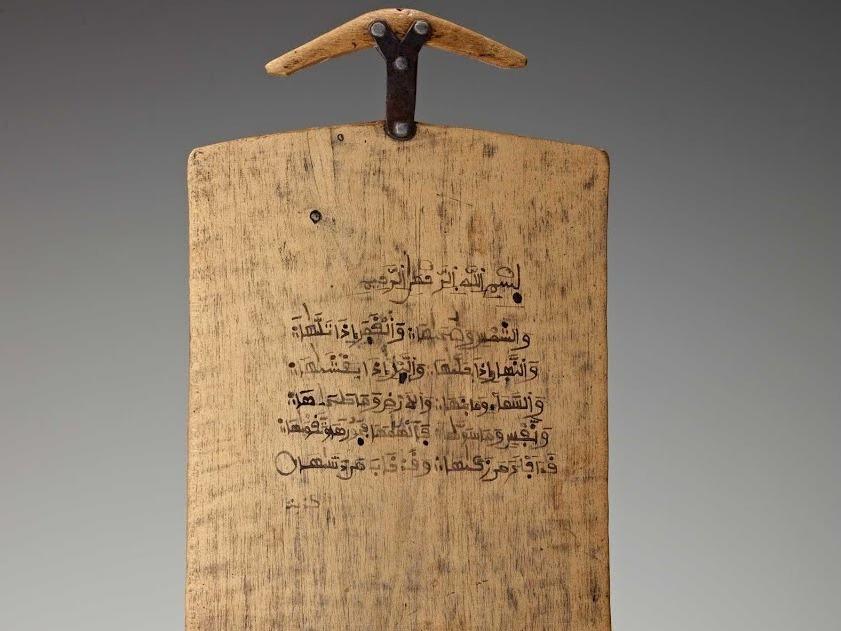 بِسْمِ اللَّهِ الرَّحْمَٰنِ الرَّحِيمِ
وَالشَّمْسِ وَضُحَاهَا وَالْقَمَرِ إِذَا تَلَاهَا
وَالنَّهَارِ إِذَا جَلَّاهَا وَالَّيْلِ إِذَا يَغْشَاهَا
وَالسَّمَاءِ وَمَا بَنَاهَا وَالْأَرْضِ وَمَا طَحَاهَا
وَنَفْسٍ وَمَا سَوَّاهَا فَأَلْهَمَهَا فُجُورَهَا وَتَقْوَاهَا
قَدْ أَفْلَحَ مَن زَكَّاهَا وَقَدْ خَابَ مَن دَسَّاهَا